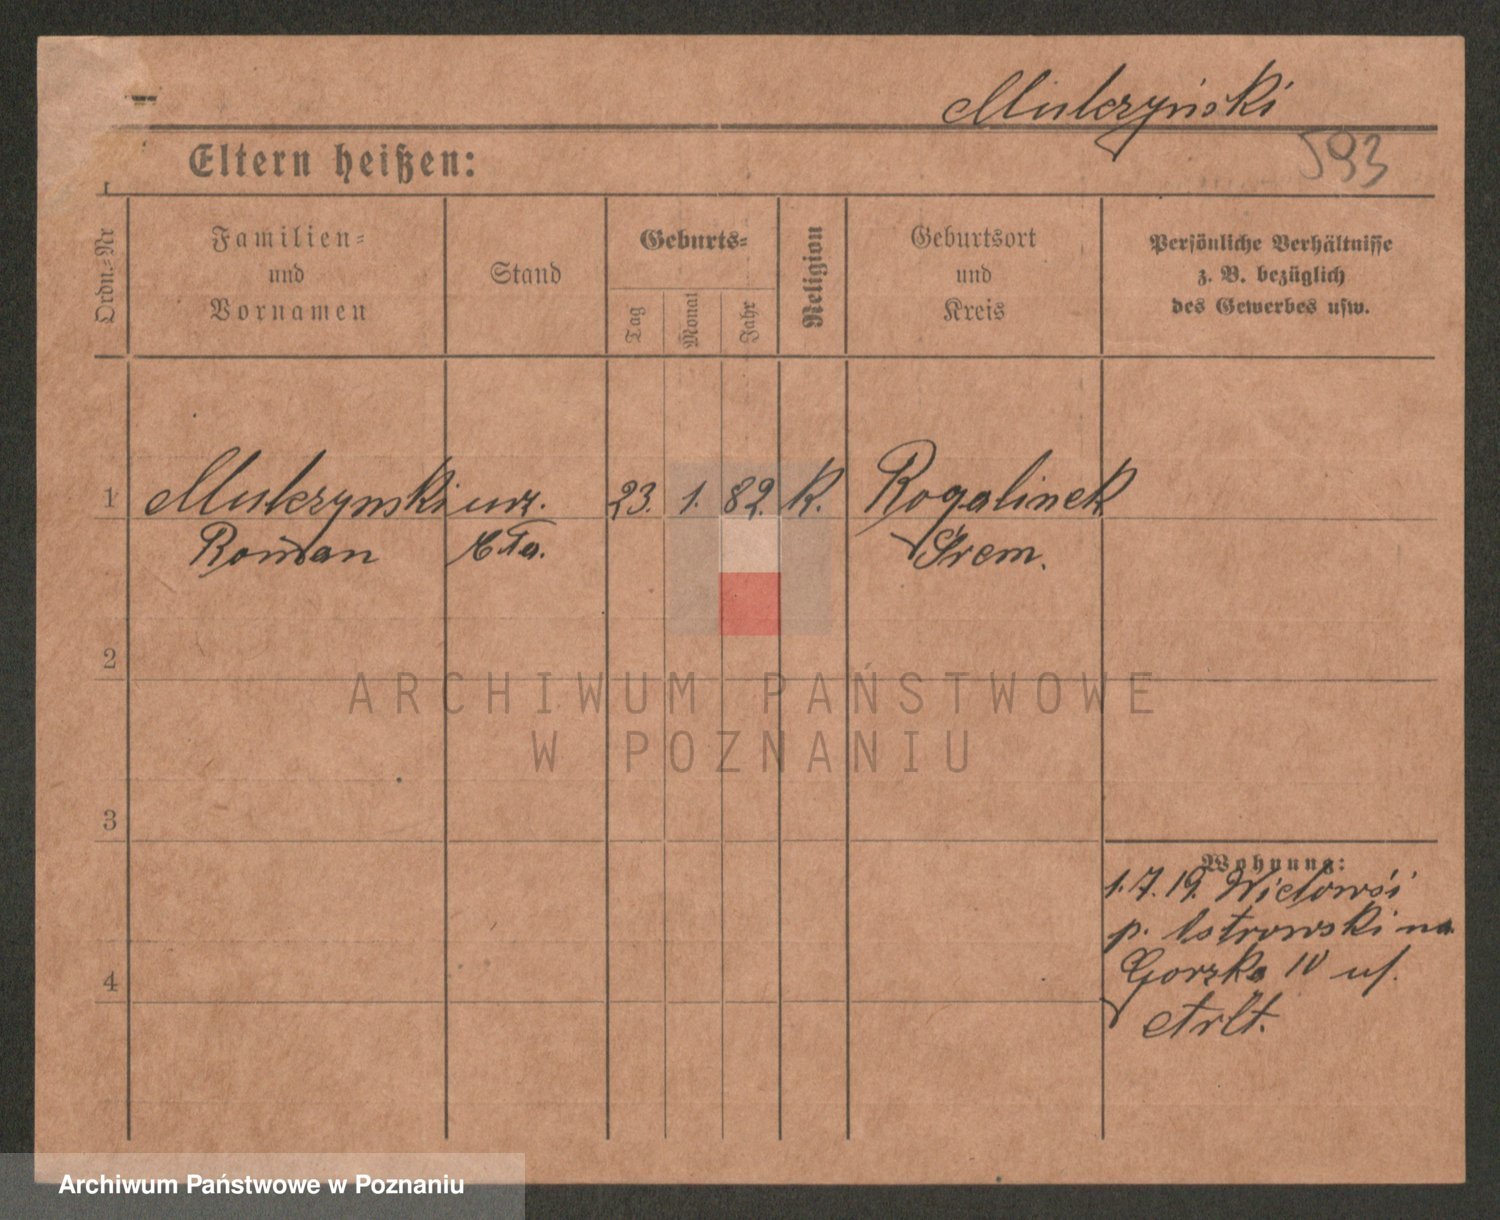 Mulczyński
593
Eltern heißen:
Ordn.-Nr
Familien-
und
Vornamen
Stand
Geburts-
Tag
Monat
Jahr
Religion
Geburtsort
und
Kreis
Persönliche Verhältnisse
z. B. bezüglich
des Gewerbes usw.
1 Mulczynski urz. 23. 1. 82. K. Rogalinek
Roman Śrem.
2
3
4
Wohnung:
1.7.19.
p. Ostrowski na
Gorzka 10 u f.
Arlt.
ARCHIWUM PAŃSTWOWE
W POZNANIU
Archiwum Państwowe w Poznaniu